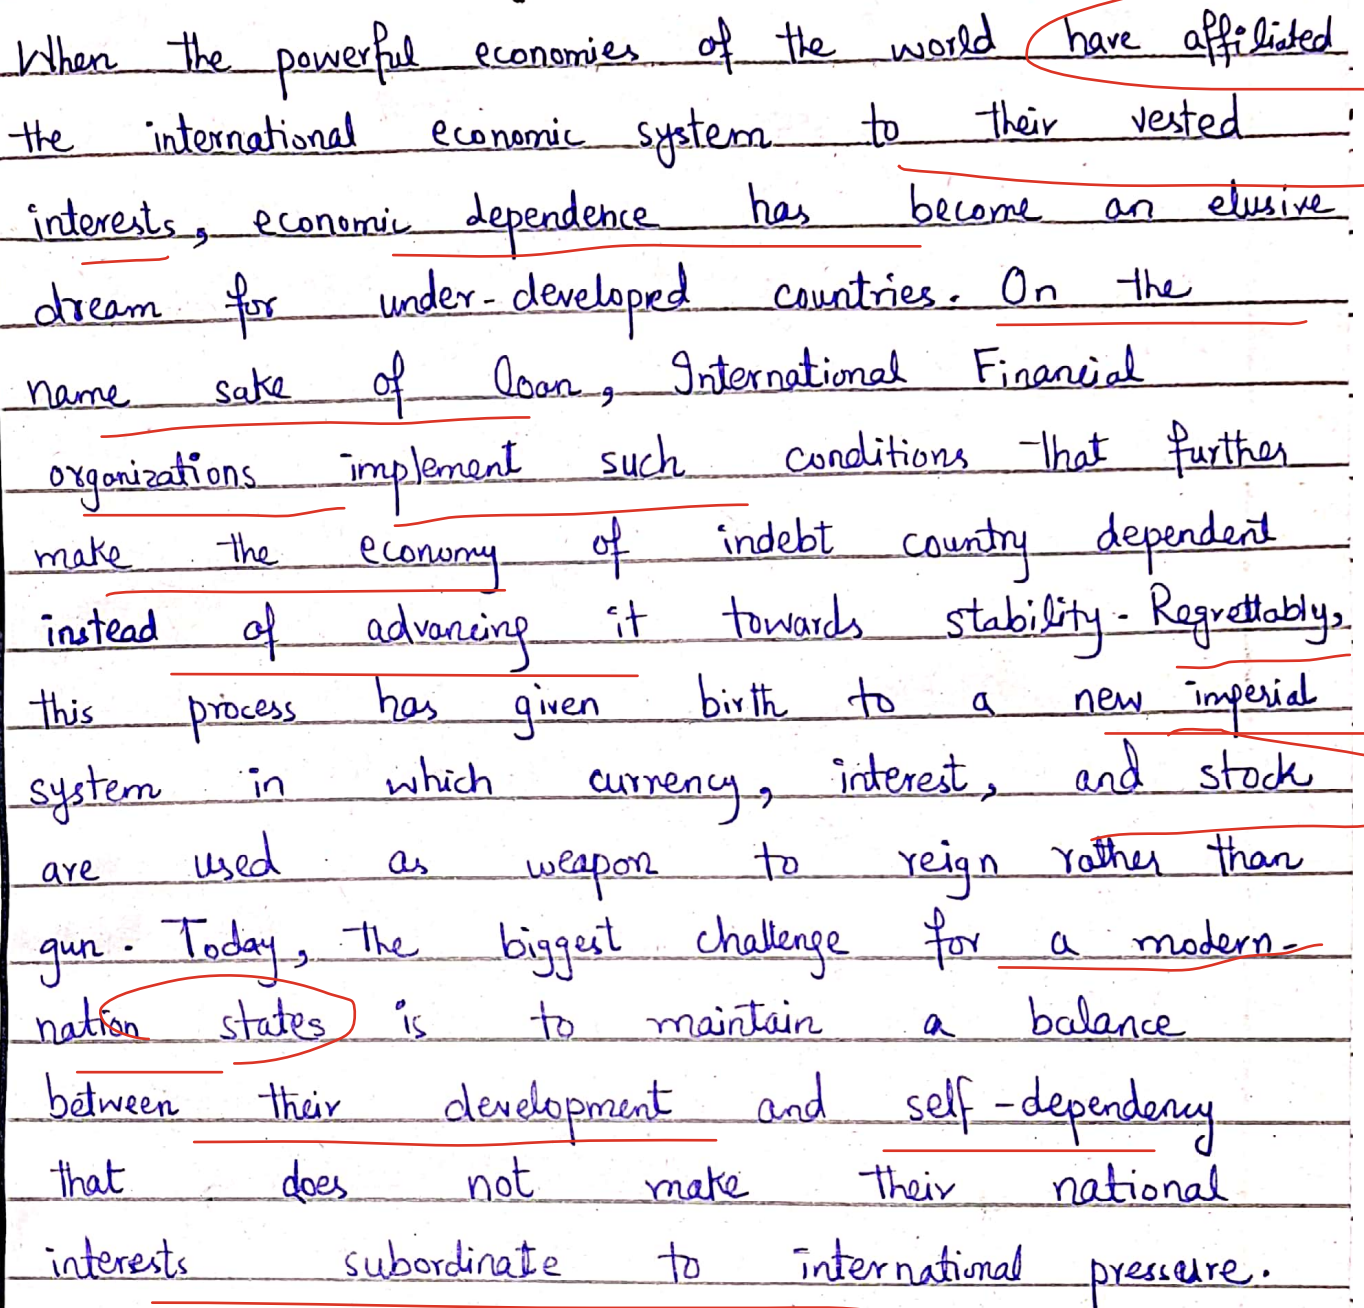 When the powerful economies of the world have affiliated
the international economic system to their vested
interests, economic dependence has become an elusive
dream for under-developed countries. On the
name sake of loan, International Financial
organizations implement such conditions that further
make the economy of indebt country dependent
instead of advancing it towards stability. Regrettably,
this process has given birth to a new imperial
system in which currency, interest, and stock
are used as weapon to reign rather than
gun. Today, the biggest challenge for a modern-
nation states is to maintain a balance
between their development and self-dependency
that does not make their national
interests subordinate to international pressure.